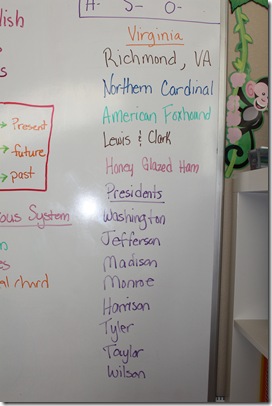 H- S- O-
lish
s
Virginia
Richmond, VA
Northern Cardinal
American Foxhound
Lewis & Clark
Honey Glazed Ham
→ Present
→ future
→ past
Presidents
Washington
Jefferson
Madison
Monroe
Harrison
Tyler
Taylor
Wilson
ous System
es
al chord